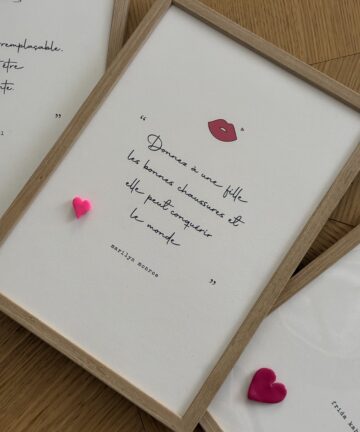 remplaçable.
être
“
Donnez à une fille
les bonnes chaussures et
elle peut conquérir
le monde
marilyn monroe
”
”
frida